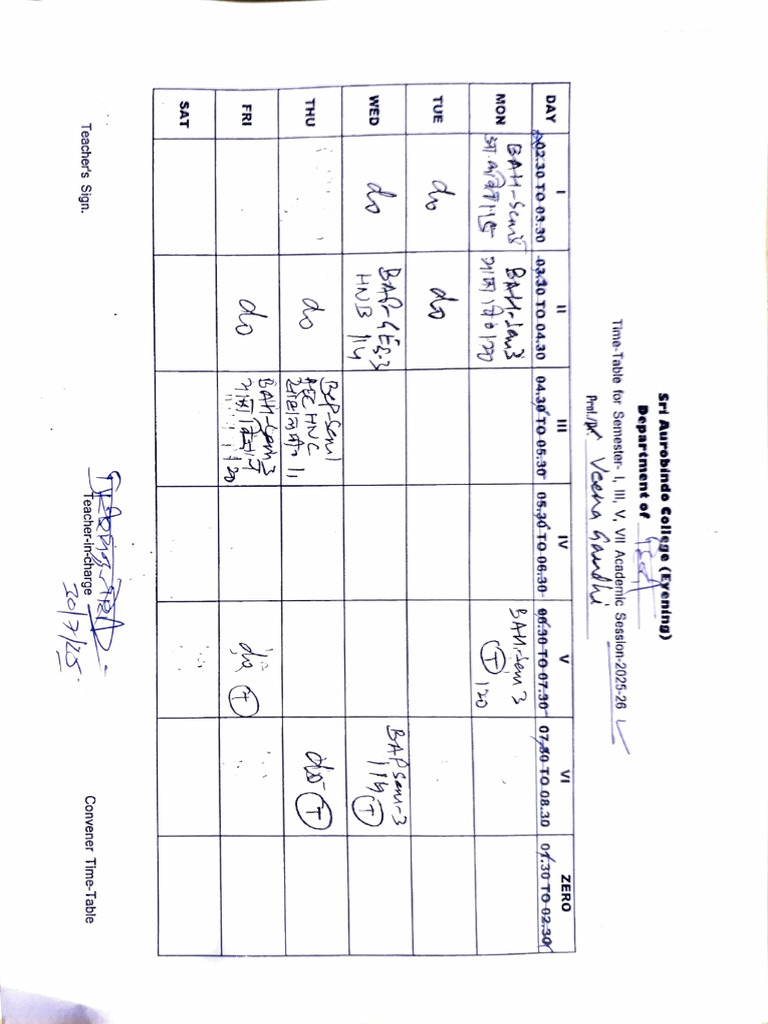 Sri Aurobindo College (Evening)
Department of
Time-Table for Semester- I, III, V, VII Academic Session-2025-26
Prof./Dr. Veena Gandhi
DAY I II III IV V VI ZERO
02.30 TO 03.30 03.30 TO 04.30 04.30 TO 05.30 05.30 TO 06.30 06.30 TO 07.30 07.30 TO 08.30 01.30 TO 02.30
MON BAH-Sem BAH-Sem 3 BAH-Sem 3
120 T 120
TUE do do
WED do BAP-GE S-3 BAP Sem-3
HNB 114 114 T
THU do BAP-Sem 1 do T
AEC HNC
FRI do BAH-Sem 3 do T
120
SAT
Teacher's Sign. Teacher-in-charge Convener Time-Table
30/7/25